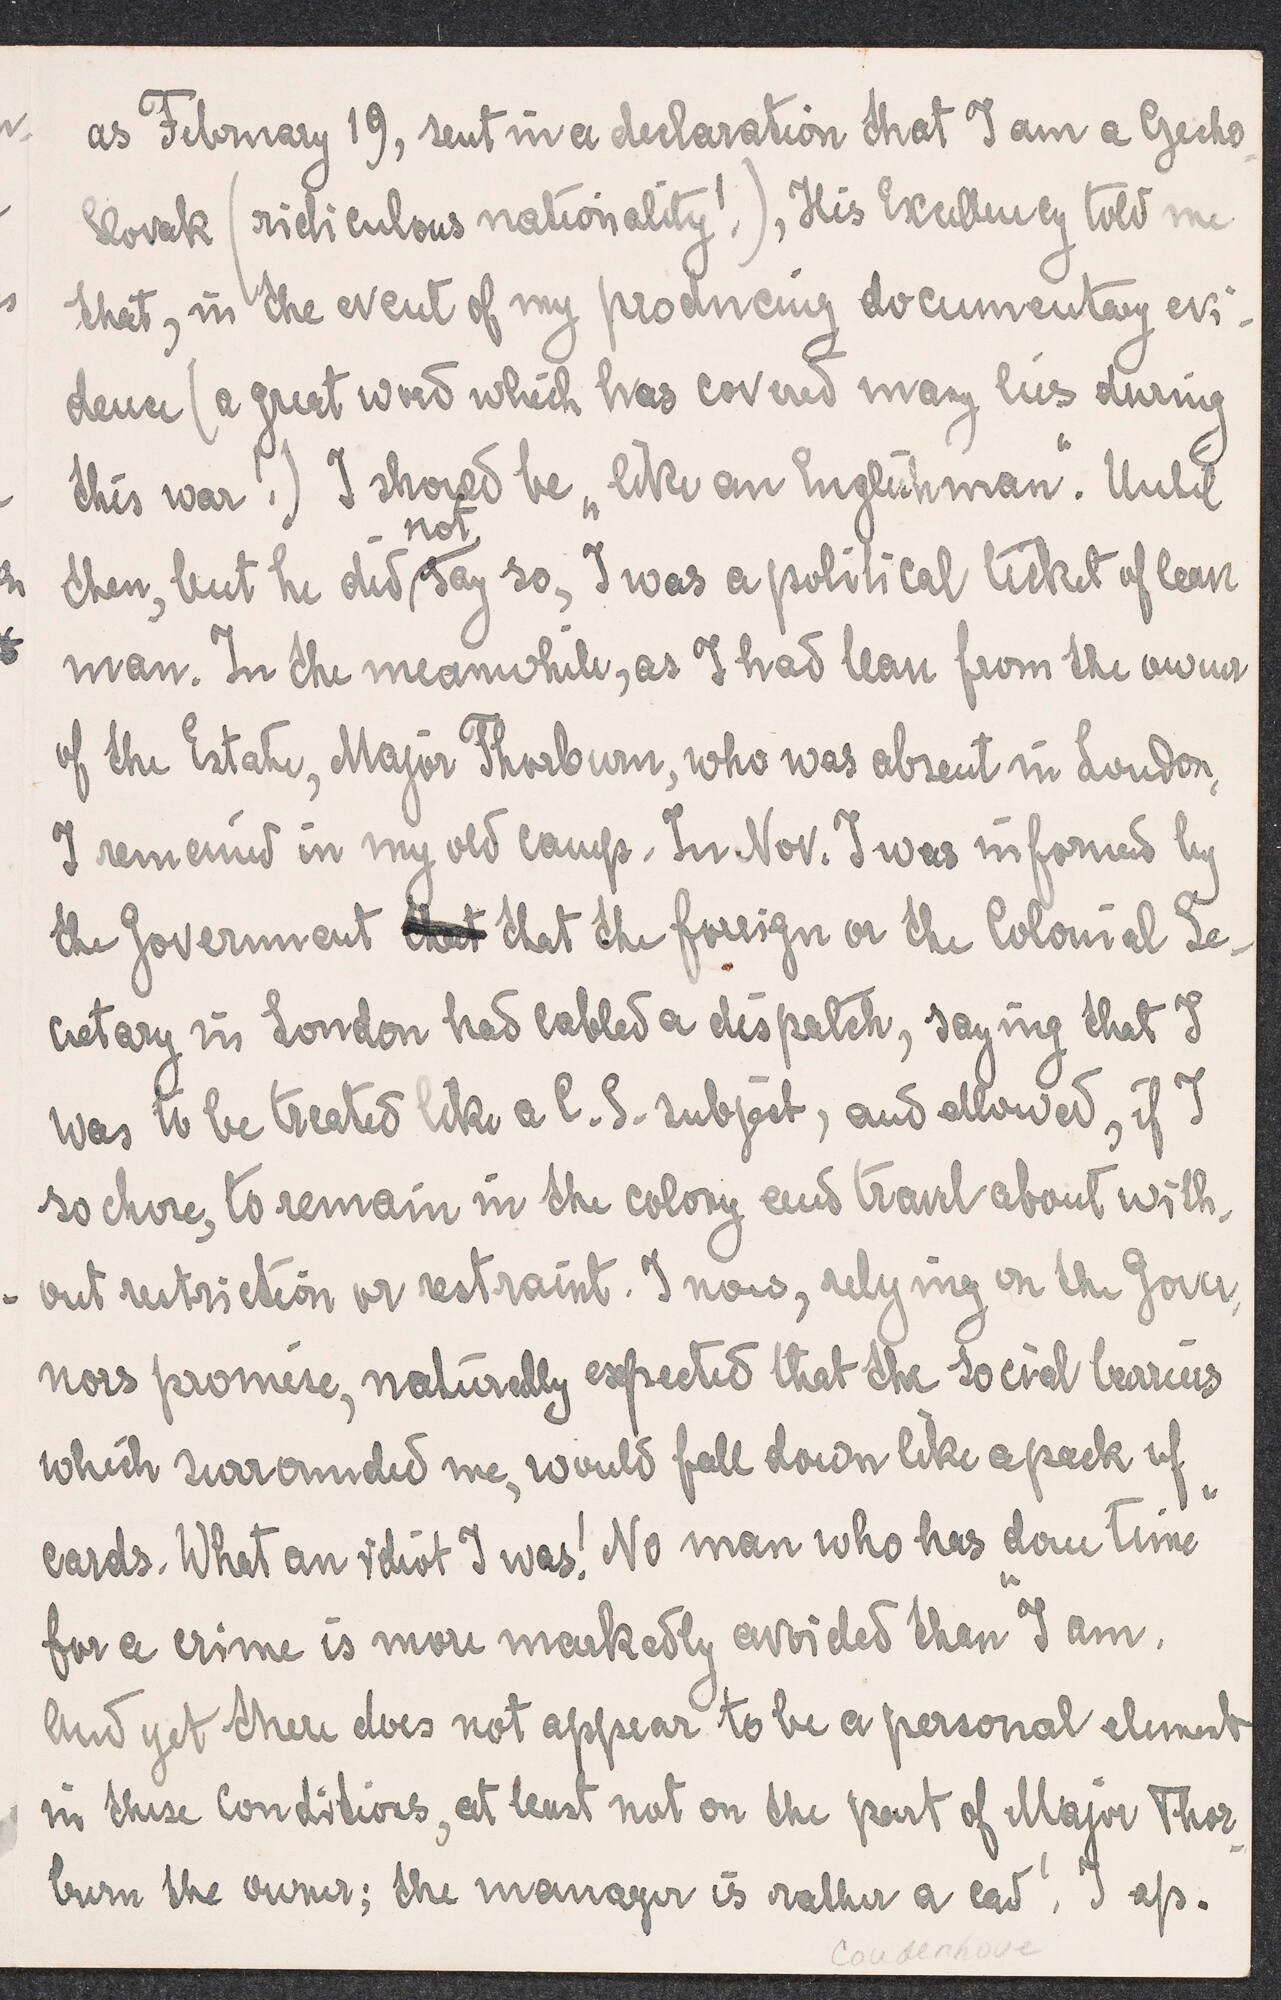 as February 19, sent in a declaration that I am a Czecho-
Slovak (ridiculous nationality!), His Excellency told me
that, in the event of my producing documentary evi-
dence (a great word which has covered many lies during
this war!) I should be „like an Englishman“. Until
then, but he did not say so, I was a political ticket of leave
man. In the meanwhile, as I had leave from the owner
of the Estate, Major Thorburn, who was absent in London,
I remained in my old camp. In Nov. I was informed by
the Government that that the foreign or the Colonial Se-
cretary in London had cabled a dispatch, saying that I
was to be treated like a C.S. subject, and allowed, if I
so chose, to remain in the colony and travel about with-
out restriction or restraint. I now, relying on the Gover-
nors promise, naturally expected that the social barriers
which surrounded me, would fall down like a pack of
cards. What an idiot I was! No man who has „done time“
for a crime is more markedly avoided than I am.
And yet there does not appear to be a personal element
in these conditions, at least not on the part of Major Thor-
burn the owner; the manager is rather a cad! I ap-
Coudenhove